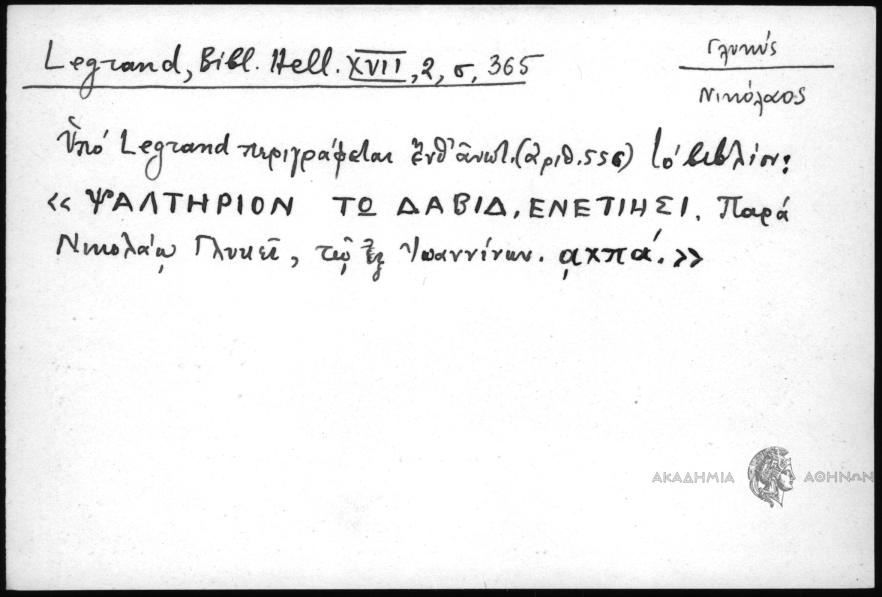 Legrand, Bibl. Hell. XVII, 2, σ, 365
Γλυκύς
Νικόλαος
Ὑπό Legrand περιγράφεται ἐνθ' ἀνωτ. (ἀριθ. 556) τό βιβλίον:
«ΨΑΛΤΗΡΙΟΝ ΤΩ ΔΑΒΙΔ, ΕΝΕΤΙΗΣΙ. Παρά
Νικολάῳ Γλυκεῖ, τῷ ἐξ Ἰωαννίνων. ͵αχπά.»
ΑΚΑΔΗΜΙΑ ΑΘΗΝΩΝ